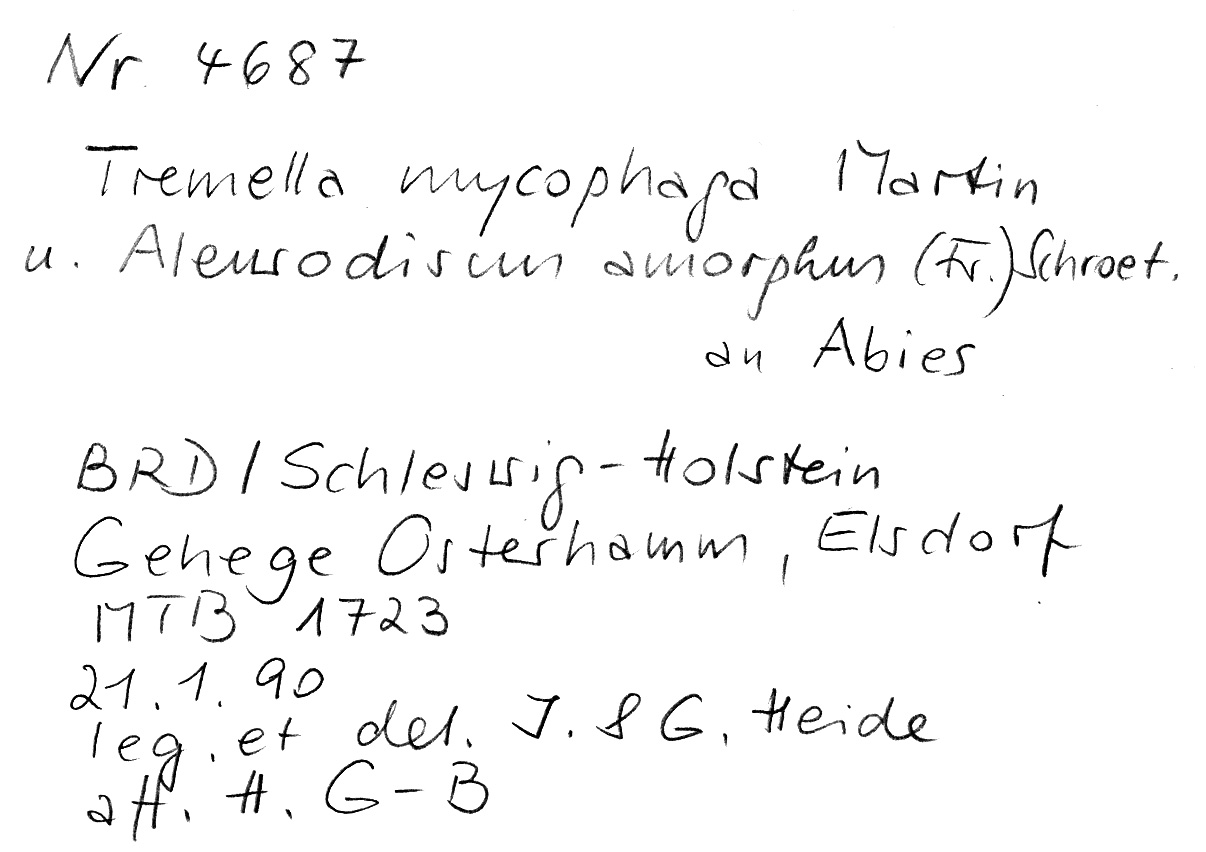 Nr. 4687
Tremella mycophaga Martin
u. Aleurodiscus amorphus (Fr.) Schroet.
an Abies
BRD / Schleswig-Holstein
Gehege Osterhamm, Elsdorf
MTB 1723
21.1.90
leg. et det. J. & G. Heide
att. H. G-B